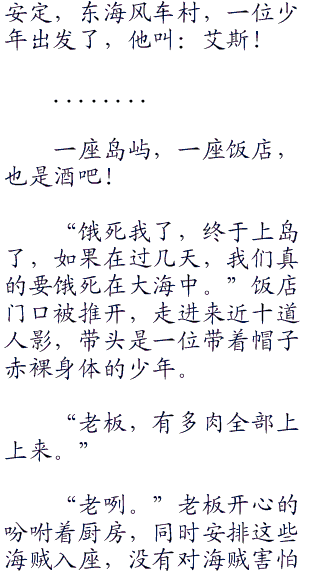 安定，东海风车村，一位少
年出发了，他叫：艾斯！
........
一座岛屿，一座饭店，
也是酒吧！
“饿死我了，终于上岛
了，如果在过几天，我们真
的要饿死在大海中。”饭店
门口被推开，走进来近十道
人影，带头是一位带着帽子
赤裸身体的少年。
“老板，有多肉全部上
上来。”
“老咧。”老板开心的
吩咐着厨房，同时安排这些
海贼入座，没有对海贼害怕